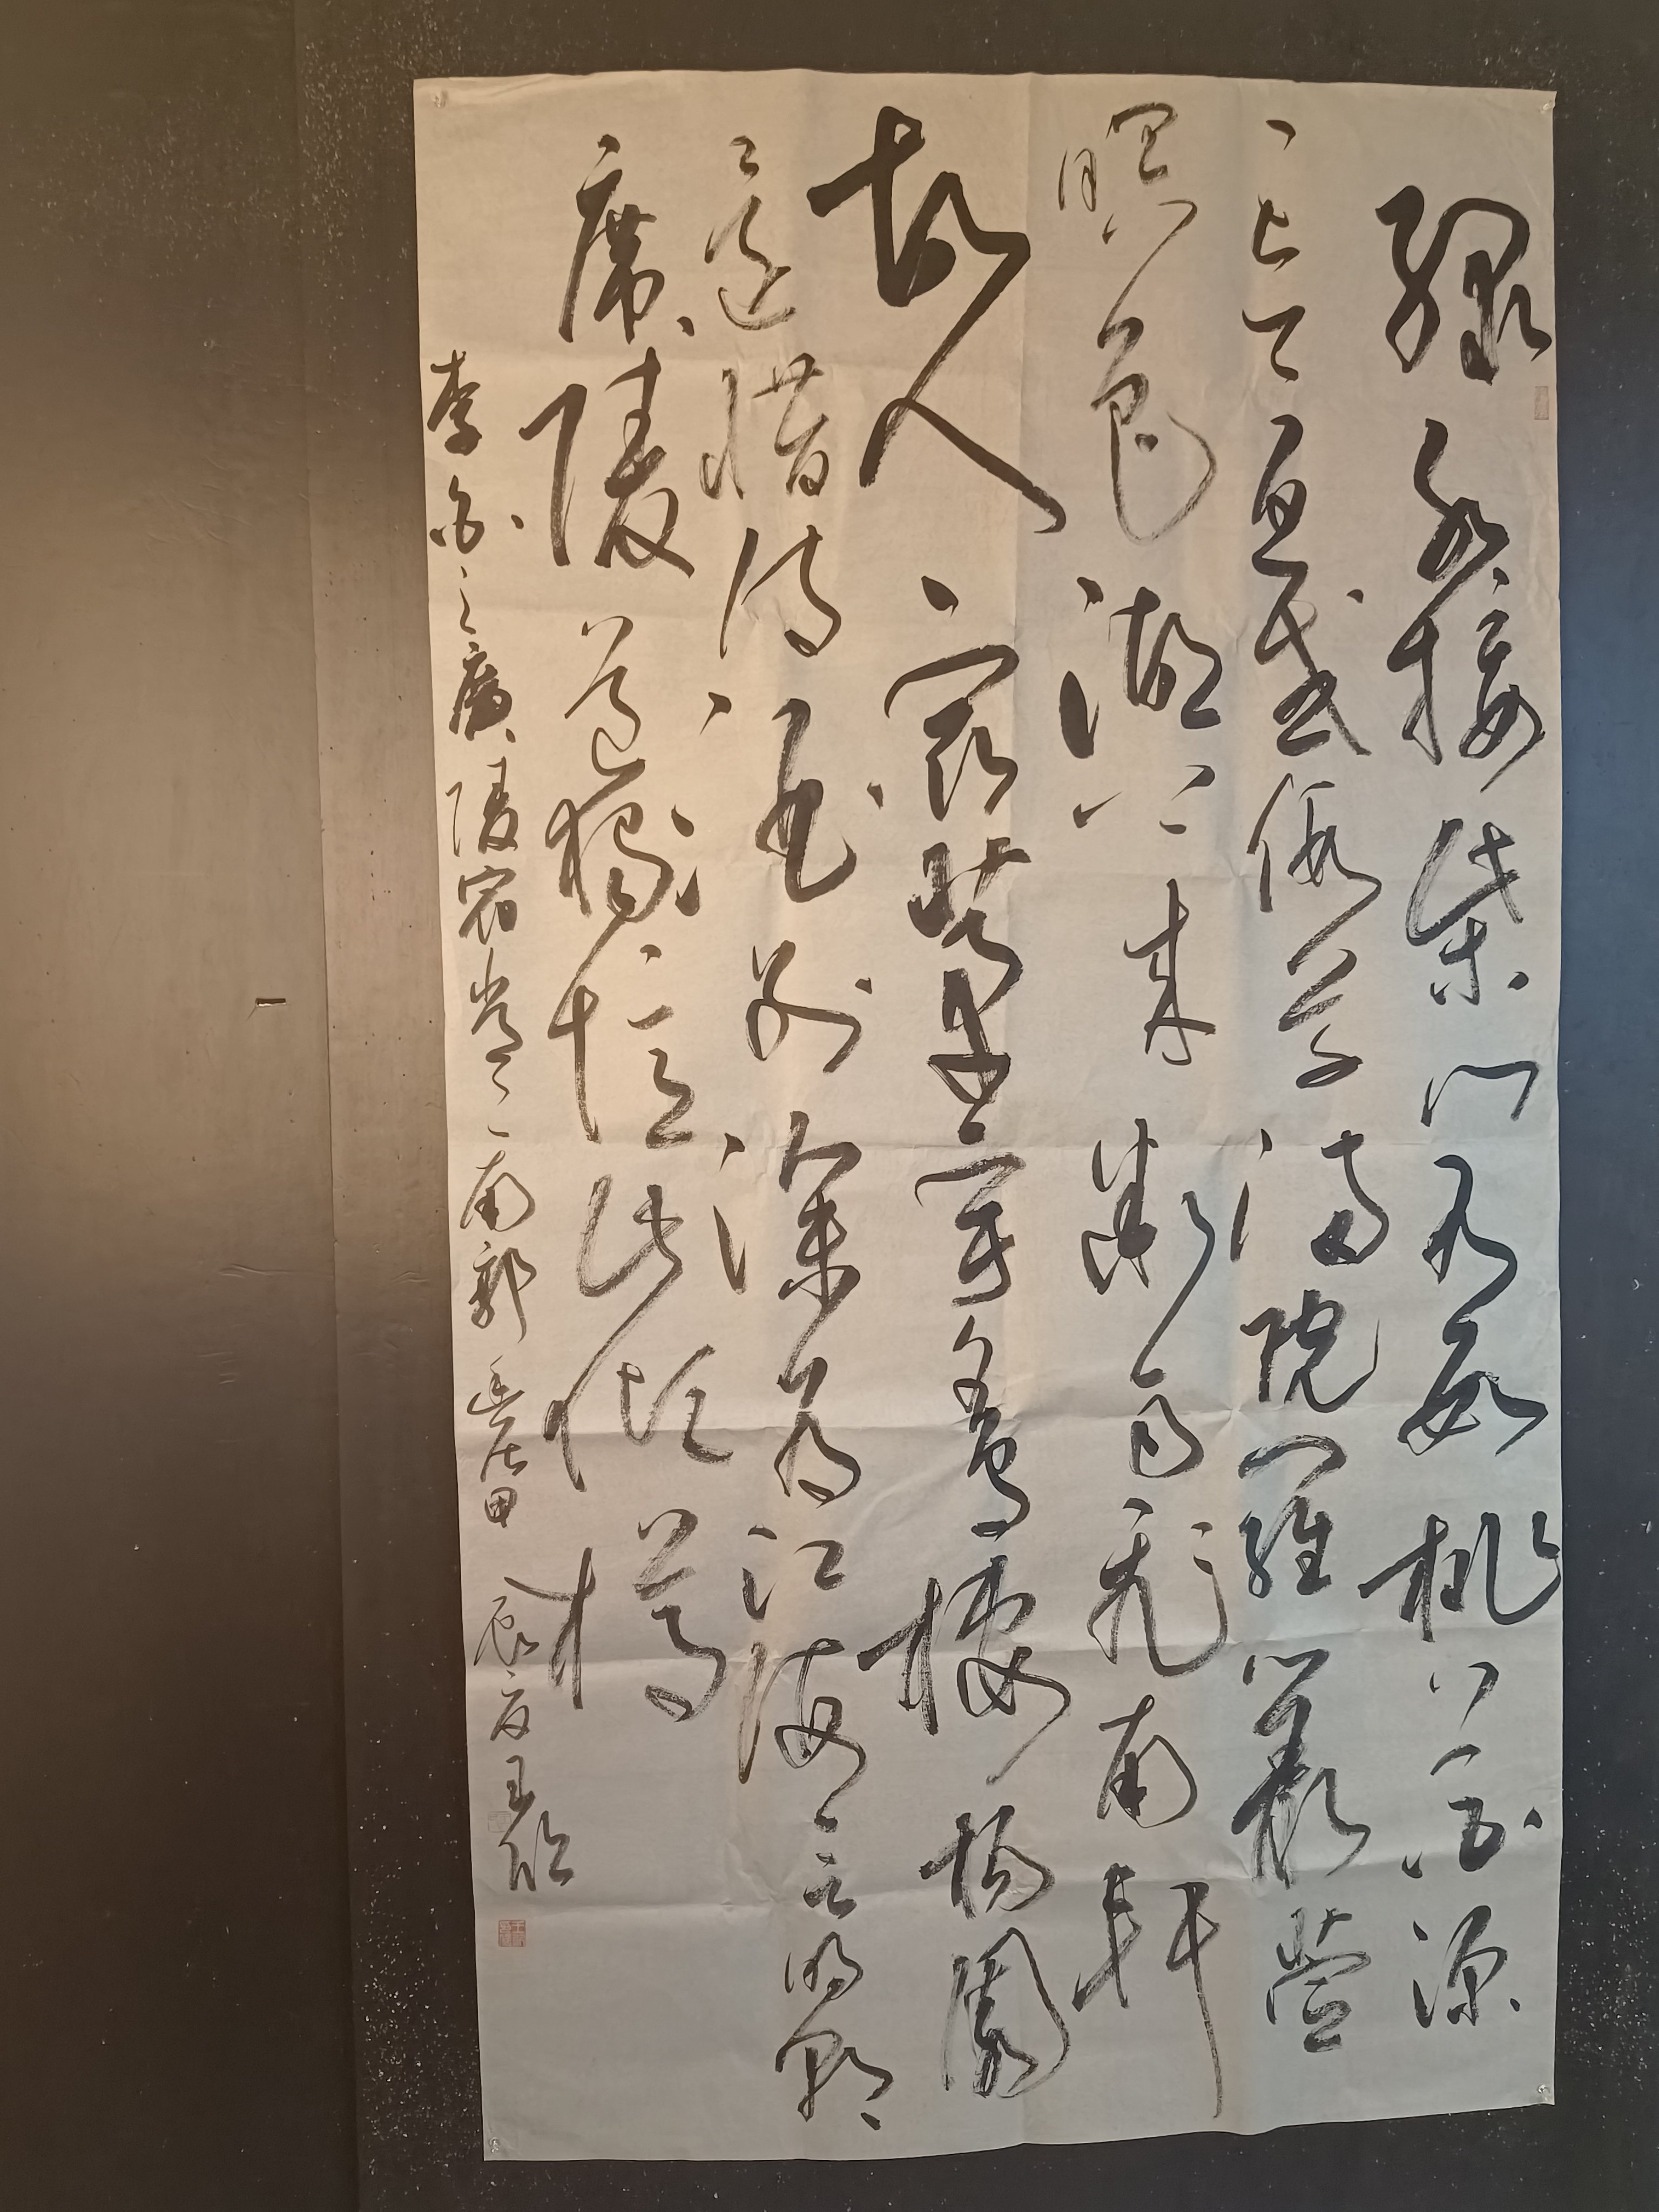 綠水接柴門有如桃花源
忘憂或假草滿院羅叢萱
暝色湖上來微雨飛南軒
故人宿茅宇夕鳥棲楊園
還惜詩酒別深為江海言明朝
廣陵道獨憶此傾樽
李白之廣陵宿常二南郭幽居甲辰夏王